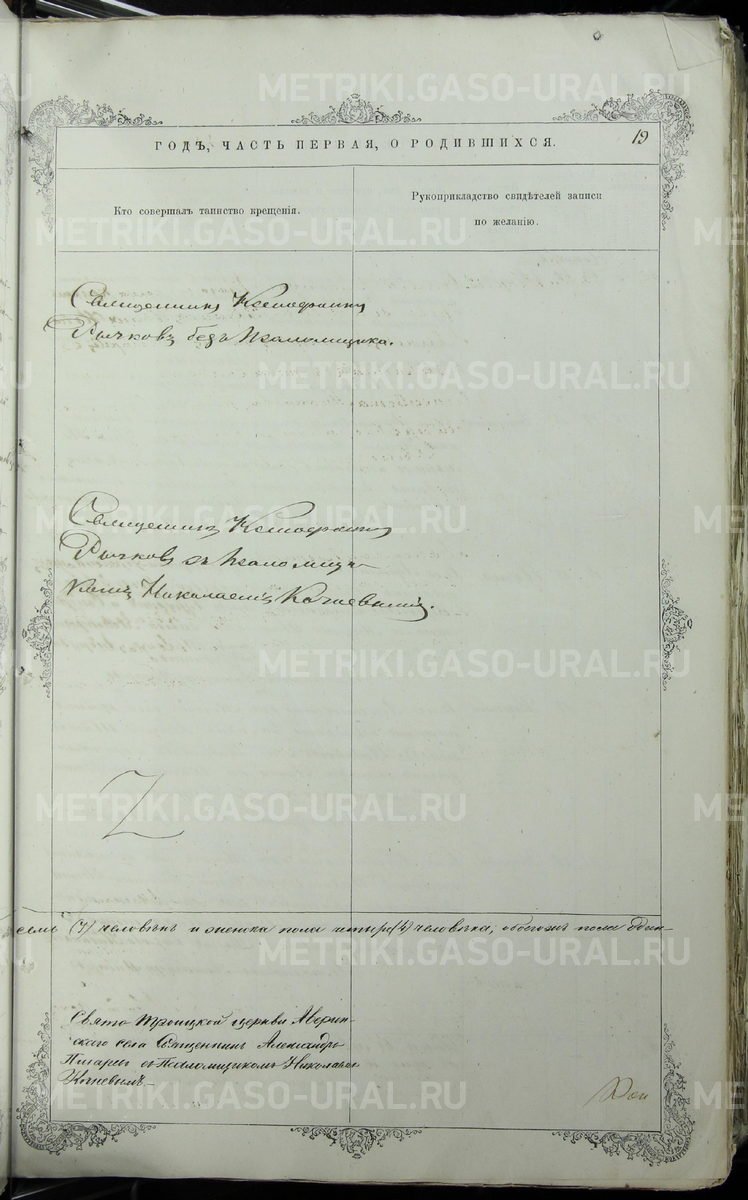 METRIKI.GASO-URAL.RU
19
ГОДЪ, ЧАСТЬ ПЕРВАЯ, О РОДИВШИХСЯ.
Кто совершалъ таинство крещенія.
Рукоприкладство свидѣтелей записи
по желанію.
Священникъ Ксенофонтъ
Рычковъ безъ Псаломщика.
Священникъ Ксенофонтъ
Рычковъ съ Псаломщи-
комъ Николаемъ Кочневымъ.
семь (7) человѣкъ и женска пола четыре (4) человѣка, обоего пола один-
Свято Троицкой церкви Аверин-
скаго села Священникъ Александръ
съ Псаломщикомъ Николаемъ
Кочневымъ